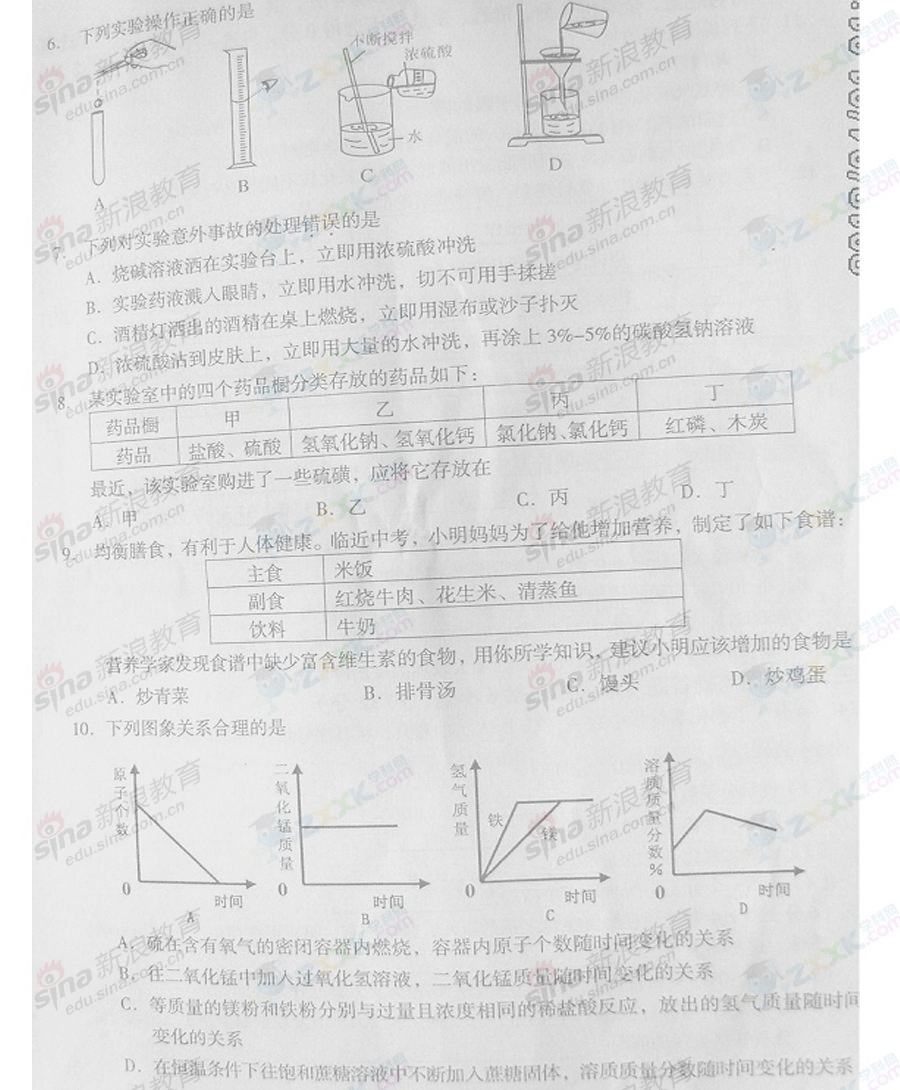 6. 下列实验操作正确的是
不断搅拌
浓硫酸
水
A B C D
7. 下列对实验意外事故的处理错误的是
A. 烧碱溶液洒在实验台上，立即用浓硫酸冲洗
B. 实验药液溅入眼睛，立即用水冲洗，切不可用手揉搓
C. 酒精灯洒出的酒精在桌上燃烧，立即用湿布或沙子扑灭
D. 浓硫酸沾到皮肤上，立即用大量的水冲洗，再涂上 3%-5%的碳酸氢钠溶液
8. 某实验室中的四个药品橱分类存放的药品如下：
药品橱 甲 乙 丙 丁
药品 盐酸、硫酸 氢氧化钠、氢氧化钙 氯化钠、氯化钙 红磷、木炭
最近，该实验室购进了一些硫磺，应将它存放在
A. 甲 B. 乙 C. 丙 D. 丁
9. 均衡膳食，有利于人体健康。临近中考，小明妈妈为了给他增加营养，制定了如下食谱：
主食 米饭
副食 红烧牛肉、花生米、清蒸鱼
饮料 牛奶
营养学家发现食谱中缺少富含维生素的食物，用你所学知识，建议小明应该增加的食物是
A. 炒青菜 B. 排骨汤 C. 馒头 D. 炒鸡蛋
10. 下列图象关系合理的是
原子个数 0 时间 A
二氧化锰质量 0 时间 B
氢气质量 铁 镁 0 时间 C
溶质质量分数% 0 时间 D
A. 硫在含有氧气的密闭容器内燃烧，容器内原子个数随时间变化的关系
B. 往二氧化锰中加入过氧化氢溶液，二氧化锰质量随时间变化的关系
C. 等质量的镁粉和铁粉分别与过量且浓度相同的稀盐酸反应，放出的氢气质量随时间
变化的关系
D. 在恒温条件下往饱和蔗糖溶液中不断加入蔗糖固体，溶质质量分数随时间变化的关系
sina 新浪教育
edu.sina.com.cn
ZXXK.com 学科网